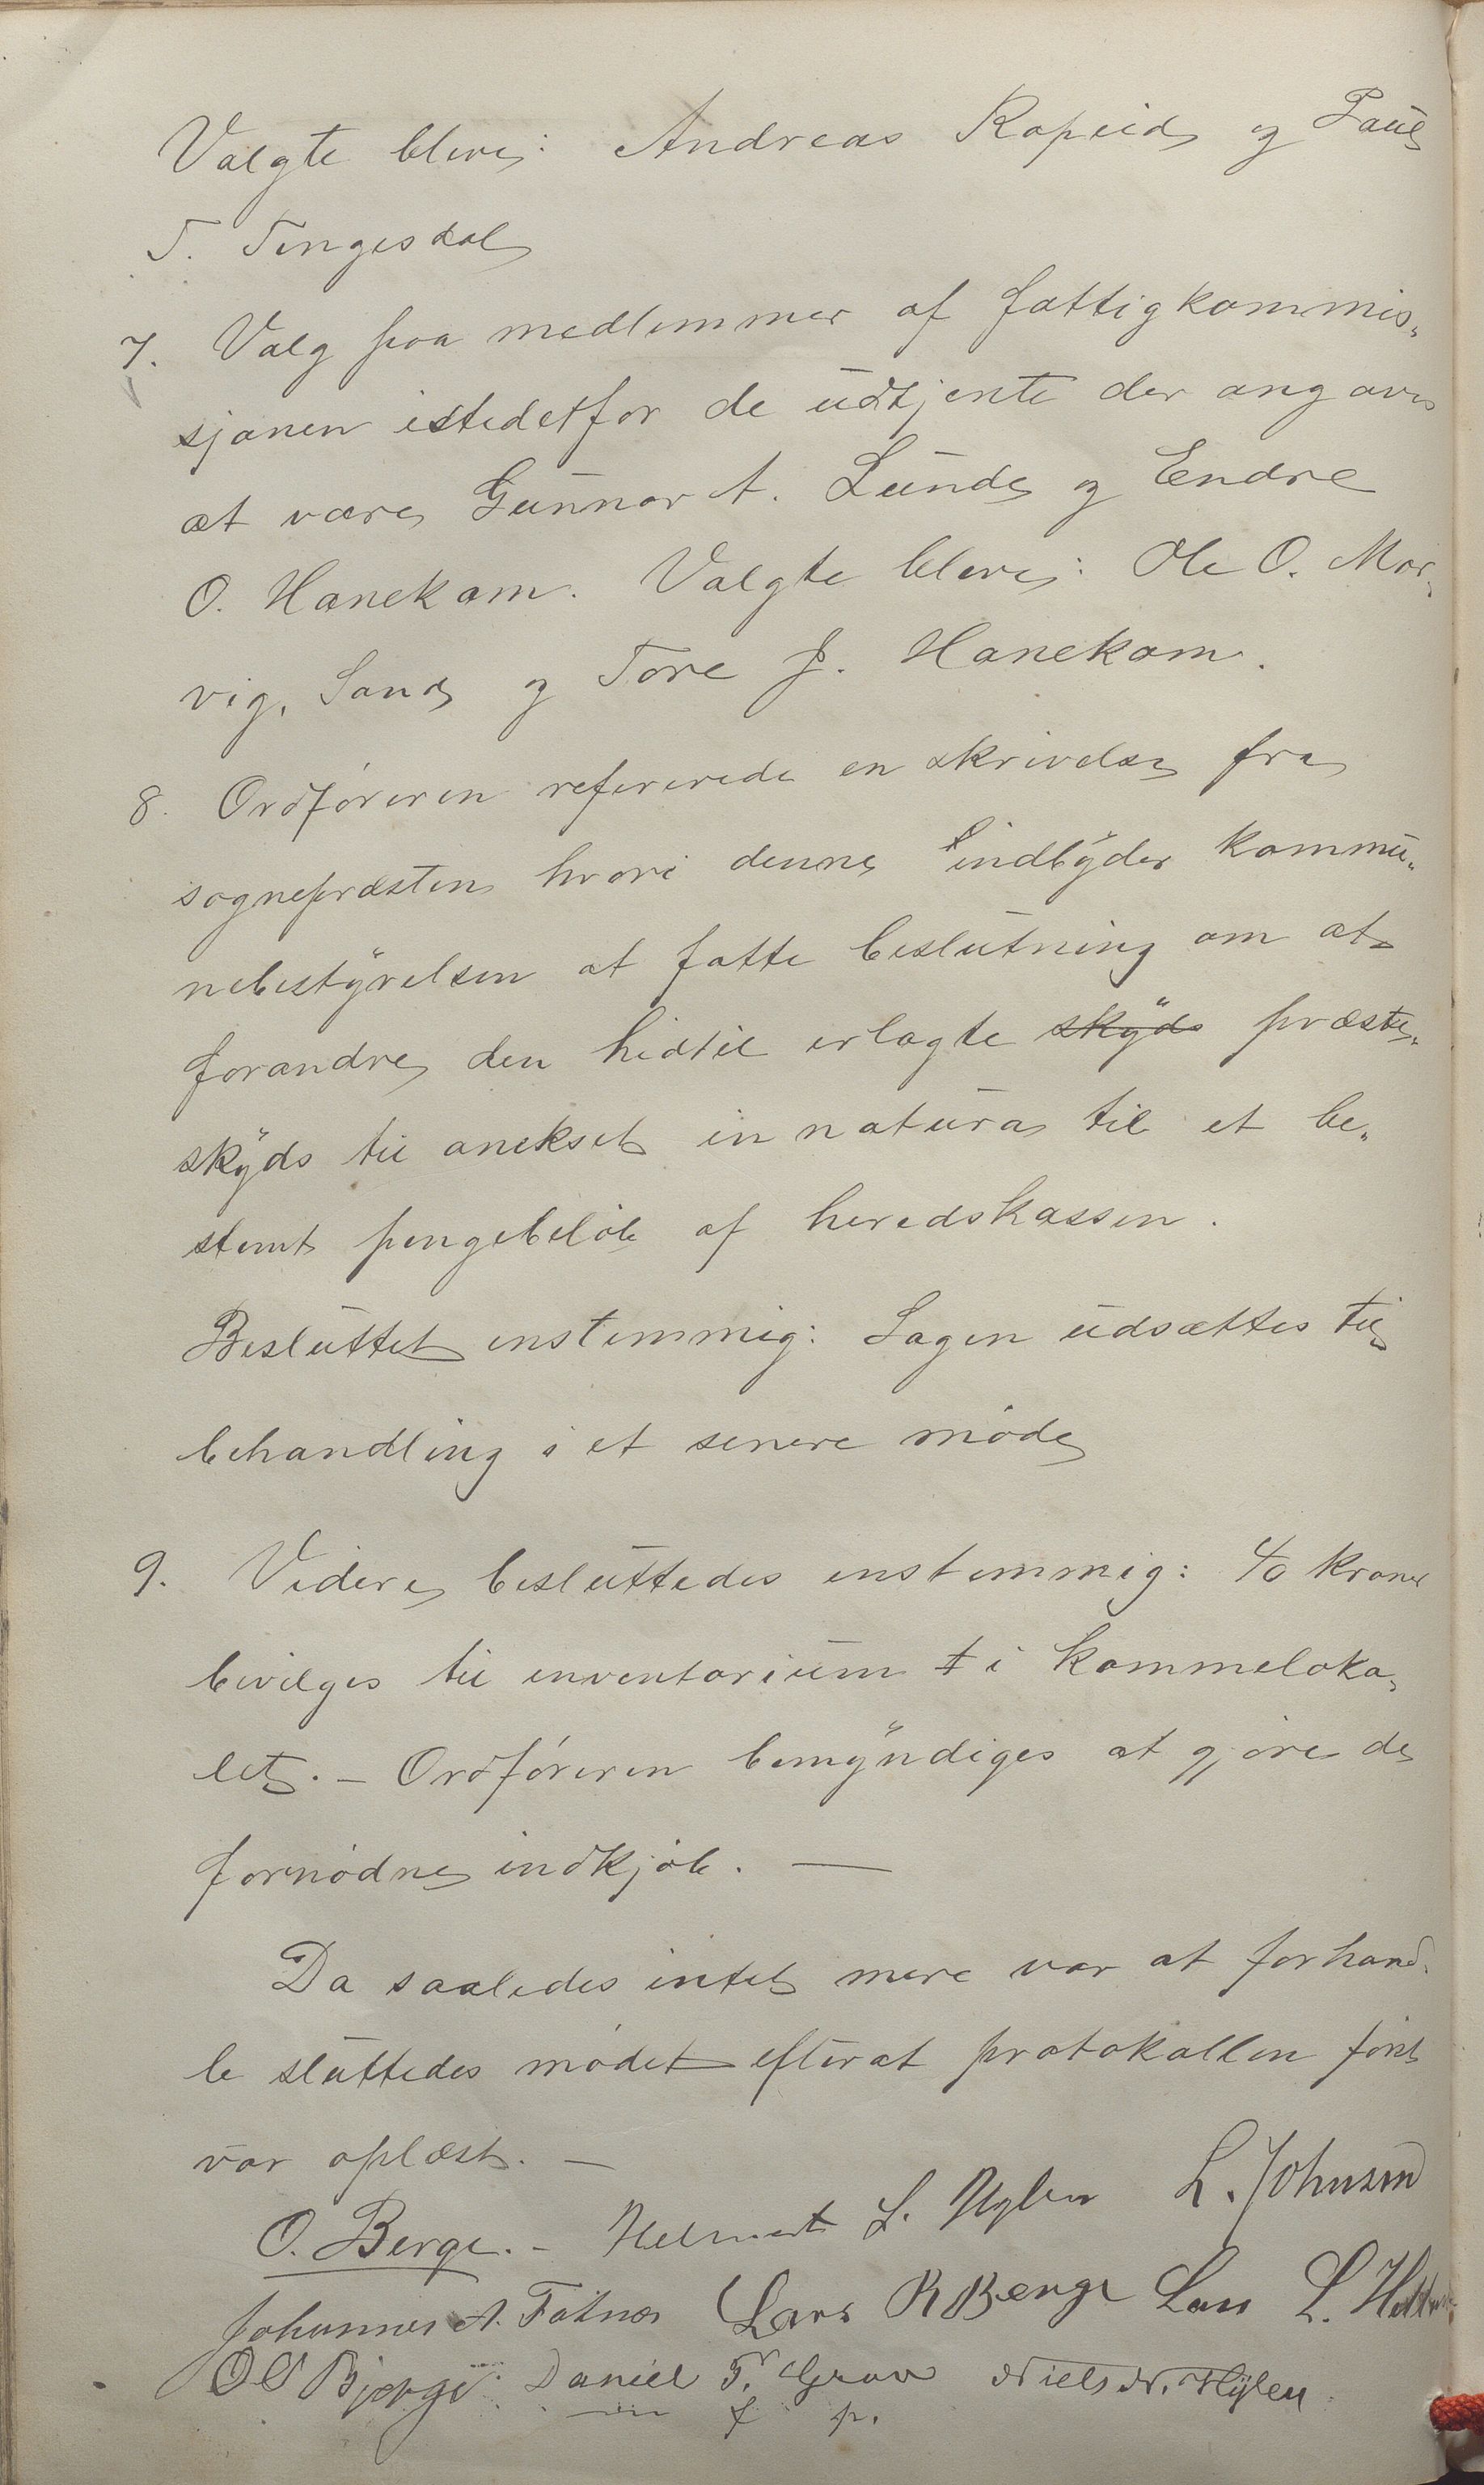 Valgte bleve: Andreas Rapeid og Paul
T. Tengesdal
7. Valg paa medlemmer af fattigkommis„
sjonen istedetfor de udtjente der angaves
at være Gunnar A. Lunde og Endre
O. Hanekam. Valgte bleve: Ole O. Mar„
vig, Sand og Tore J. Hanekam.
8. Ordføreren refererede en skrivelse fra
sognepresten hvori denne indbyder kommu„
nebestyrelsen at fatte beslutning om at
forandre den hidtil erlagte skyds præste„
skyds til anekset in natura til et be„
stemt pengebeløb af heredskassen.
Besluttet enstemmig: Sagen udsættes til
behandling i et senere møde
9. Videre besluttedes enstemmig: 40 kroner
bevilges til inventarium t i kommeloka„
let. – Ordføreren bemyndiges at gjøre de
fornødne indkjøb. —
Da saaledes intet mere var at forhand„
le sluttedes mødet efterat protokollen først
var oplæst. –
O. Berge. – Helmert L. Hylen L. Johnsen
Johannes A. Fatnes Lars R Berge Lars L.
O O Bjerge Daniel T. Grov Niels N. Hylen
f p.